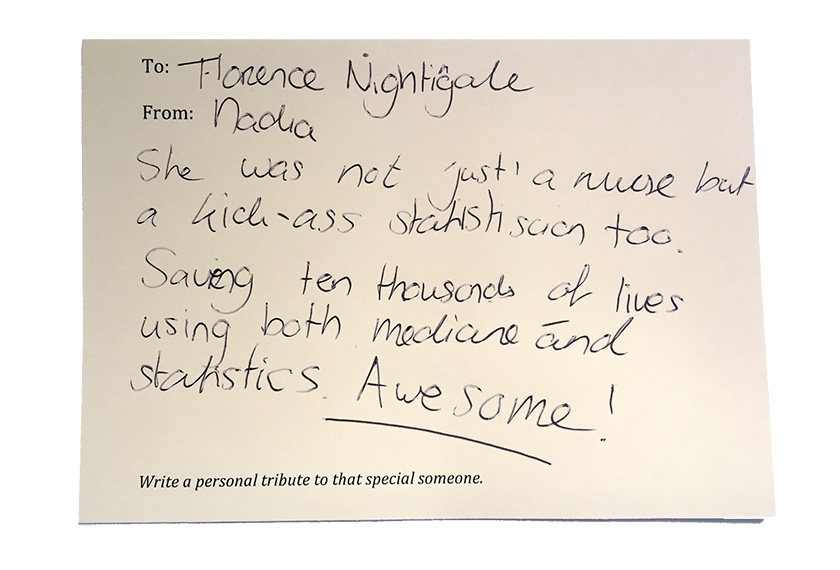 To: Florence Nightigale
From: Nadia
She was not 'just' a nurse but
a kick-ass statistiscian too.
Saving ten thousands of lives
using both medicine and
statistics. Awesome!
Write a personal tribute to that special someone.